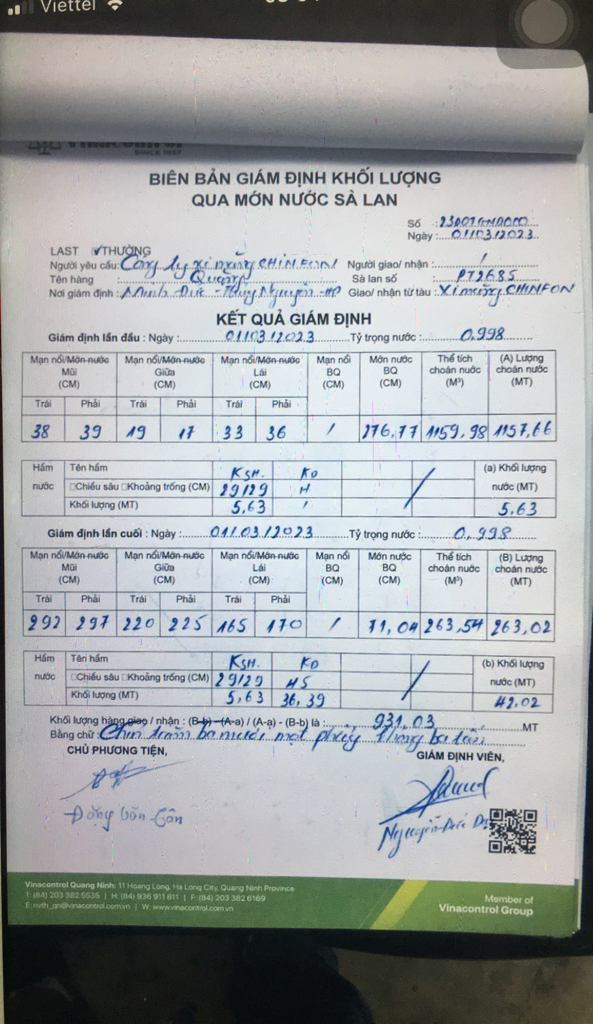 Viettel
SINCE 1957
BIÊN BẢN GIÁM ĐỊNH KHỐI LƯỢNG
QUA MỚN NƯỚC SÀ LAN
Số :
Ngày : 01/03/2023
LAST ✓THƯỜNG
Người yêu cầu: Công ty xi măng CHINFON Người giao/ nhận : /
Tên hàng : Quặng Sà lan số : PT2685
Nơi giám định : Minh Đức - Thủy Nguyên - HP Giao/ nhận từ tàu : Xi măng CHINFON
KẾT QUẢ GIÁM ĐỊNH
Giám định lần đầu : Ngày : 01/03/2023 Tỷ trọng nước : 0,998
Mạn nổi/Mớn nước Mũi (CM) Mạn nổi/Mớn nước Giữa (CM) Mạn nổi/Mớn nước Lái (CM) Mạn nổi BQ (CM) Mớn nước BQ (CM) Thể tích choán nước (M³) (A) Lượng choán nước (MT)
Trái Phải Trái Phải Trái Phải
38 39 19 17 33 36 / 276,77 1159,98 1157,66
Hầm nước Tên hầm KSH. KĐ (a) Khối lượng nước (MT)
□Chiều sâu □Khoảng trống (CM) 29/29 H
Khối lượng (MT) 5,63 / 5,63
Giám định lần cuối : Ngày : 01/03/2023 Tỷ trọng nước : 0,998
Mạn nổi/Mớn nước Mũi (CM) Mạn nổi/Mớn nước Giữa (CM) Mạn nổi/Mớn nước Lái (CM) Mạn nổi BQ (CM) Mớn nước BQ (CM) Thể tích choán nước (M³) (B) Lượng choán nước (MT)
Trái Phải Trái Phải Trái Phải
292 297 220 225 165 170 / 71,04 263,54 263,02
Hầm nước Tên hầm KSH. KĐ (b) Khối lượng nước (MT)
□Chiều sâu □Khoảng trống (CM) 29/29 45
Khối lượng (MT) 5,63 36,39 42,02
Khối lượng hàng giao / nhận : (B-b) - (A-a) / (A-a) - (B-b) là : 931,03 MT
Bằng chữ : Chín trăm ba mươi mốt phẩy không ba tấn
CHỦ PHƯƠNG TIỆN, GIÁM ĐỊNH VIÊN,
Đặng Văn Nguyễn Đức
Vinacontrol Quang Ninh: 11 Hoang Long, Ha Long City, Quang Ninh Province
T: (84) 203 382 5535 | H: (84) 936 911 811 | F: (84) 203 382 6169
W: www.vinacontrol.com.vn
Member of
Vinacontrol Group